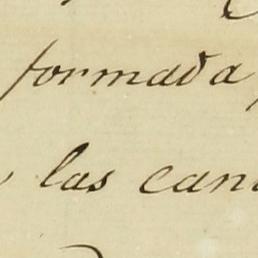 formada,
las can